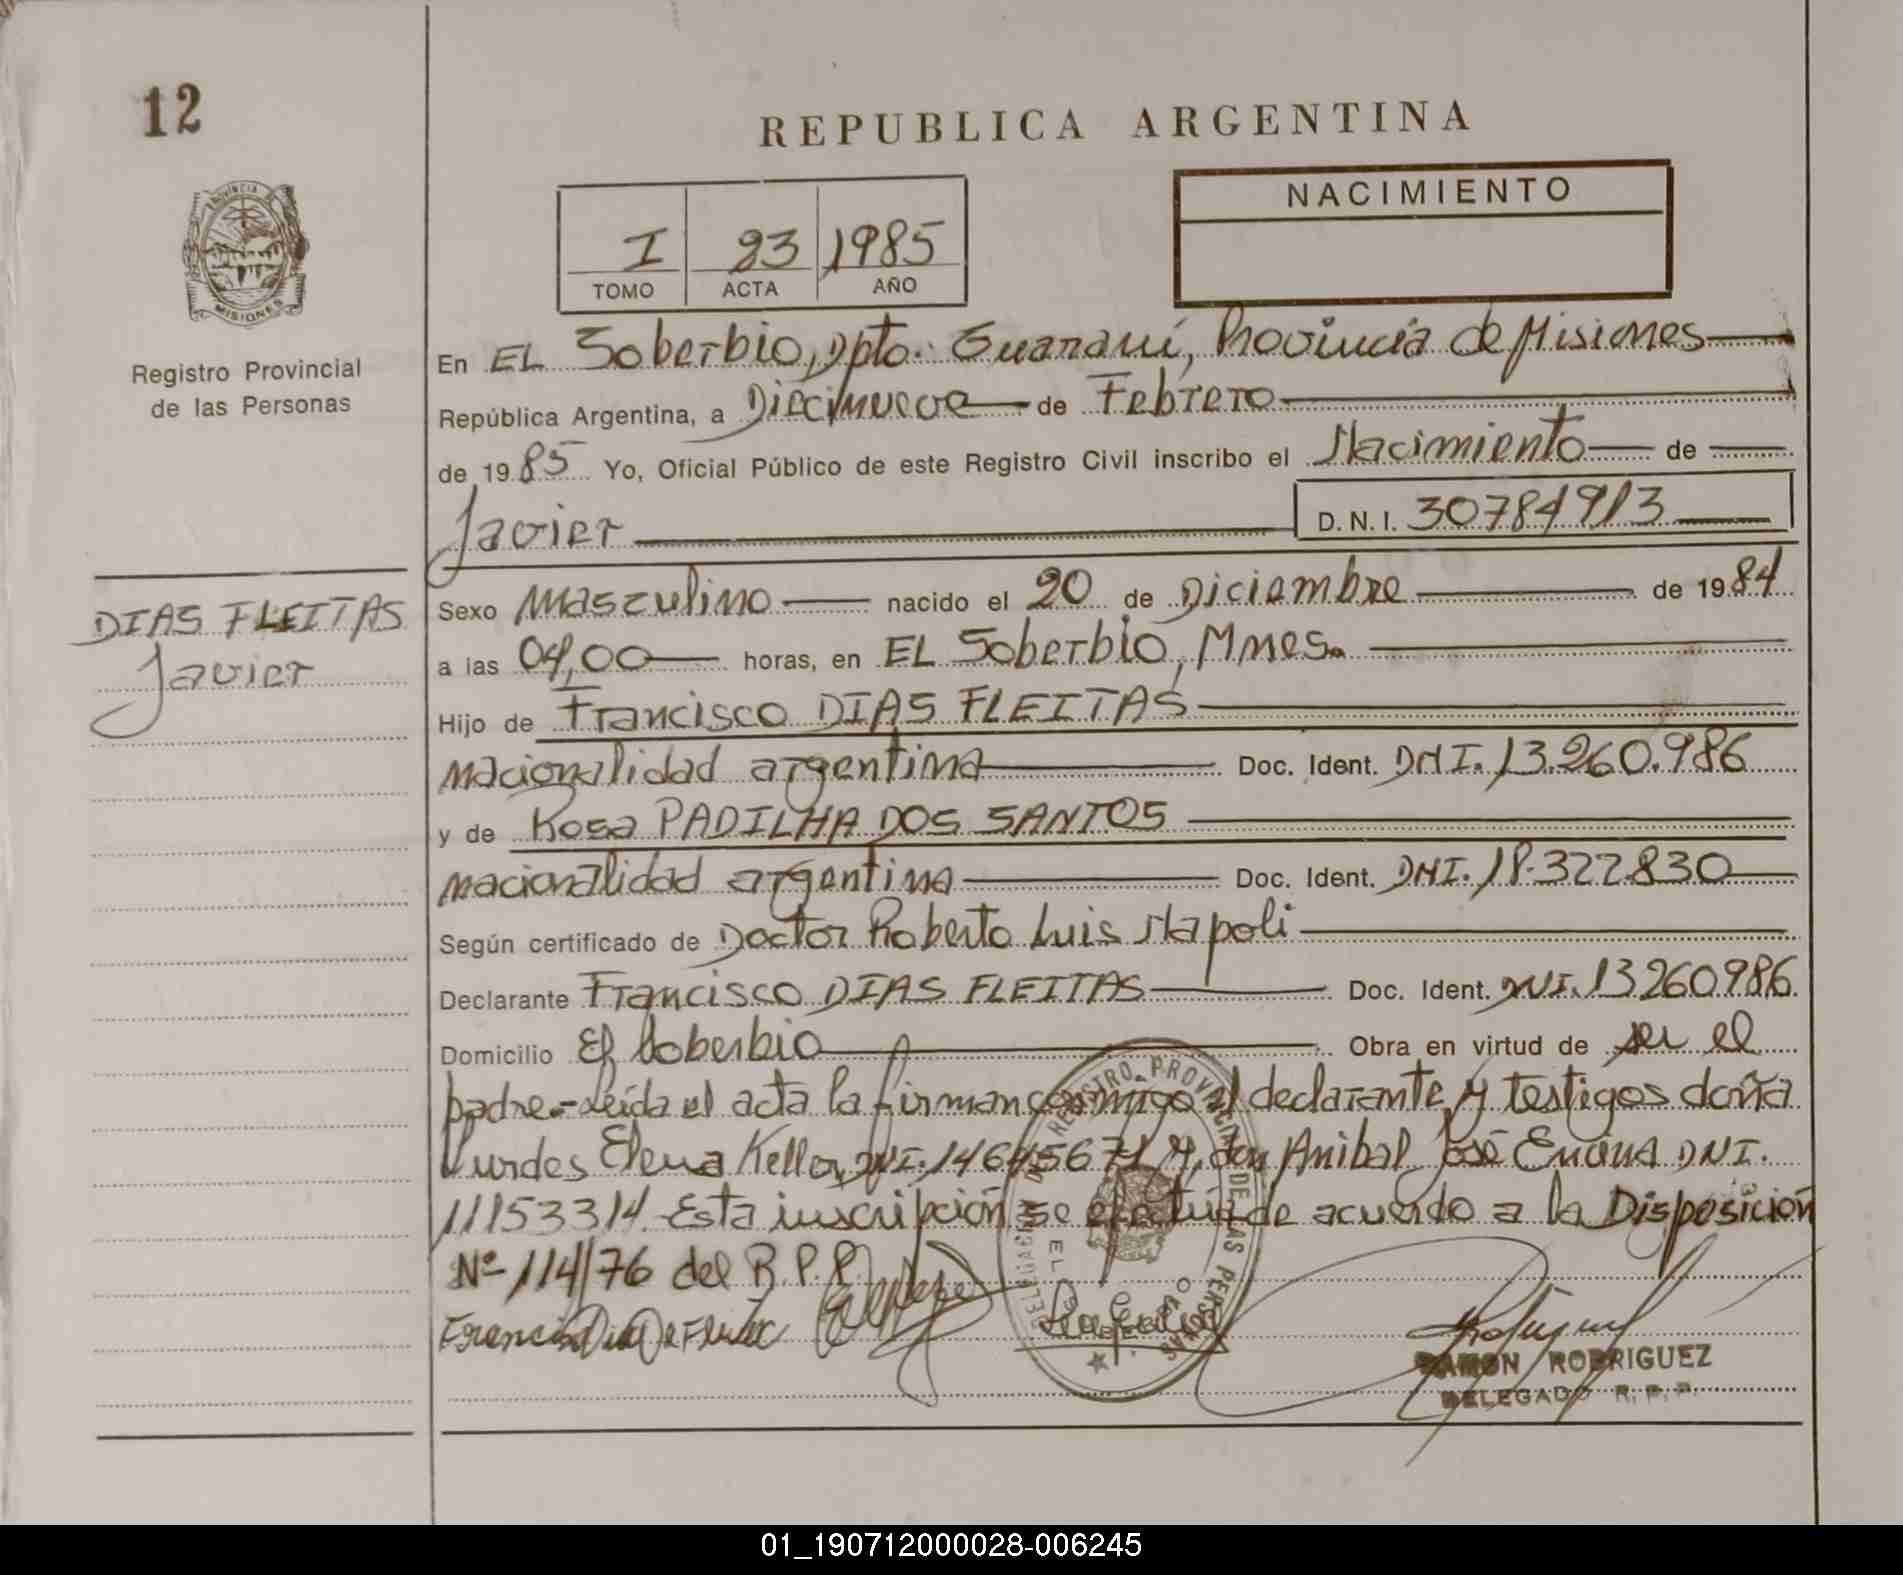 12
REPUBLICA ARGENTINA
PROVINCIA
MISIONES
Registro Provincial
de las Personas
NACIMIENTO
I 23 1985
TOMO ACTA AÑO
En EL Soberbio, Dpto. Guaraní, Provincia de Misiones
República Argentina, a Diecinueve de Febrero
de 1985 Yo, Oficial Público de este Registro Civil inscribo el Nacimiento de
Javier D.N.I. 30784913
DIAS FLEITAS
Javier
Sexo Masculino nacido el 20 de Diciembre de 1984
a las 04,00 horas, en EL Soberbio, Mnes.
Hijo de Francisco DIAS FLEITAS
nacionalidad argentina Doc. Ident. DNI. 13.260.986
y de Rosa PADILHA DOS SANTOS
nacionalidad argentina Doc. Ident. DNI. 18.322.830
Según certificado de Doctor Roberto Luis Napoli
Declarante Francisco DIAS FLEITAS Doc. Ident. DNI. 13260.986
Domicilio El Soberbio Obra en virtud de ser el
padre.- Leída el acta la firman conmigo el declarante y testigos doña
Lurdes Elena Keller DNI. 14645671 y don Anibal José Encina DNI.
11153314. Esta inscripción se efectúa de acuerdo a la Disposición
Nº 114/76 del R.P.P.
REGISTRO PROVINCIAL DE LAS PERSONAS
RAMON RODRIGUEZ
DELEGADO R.P.P.
01_190712000028-006245